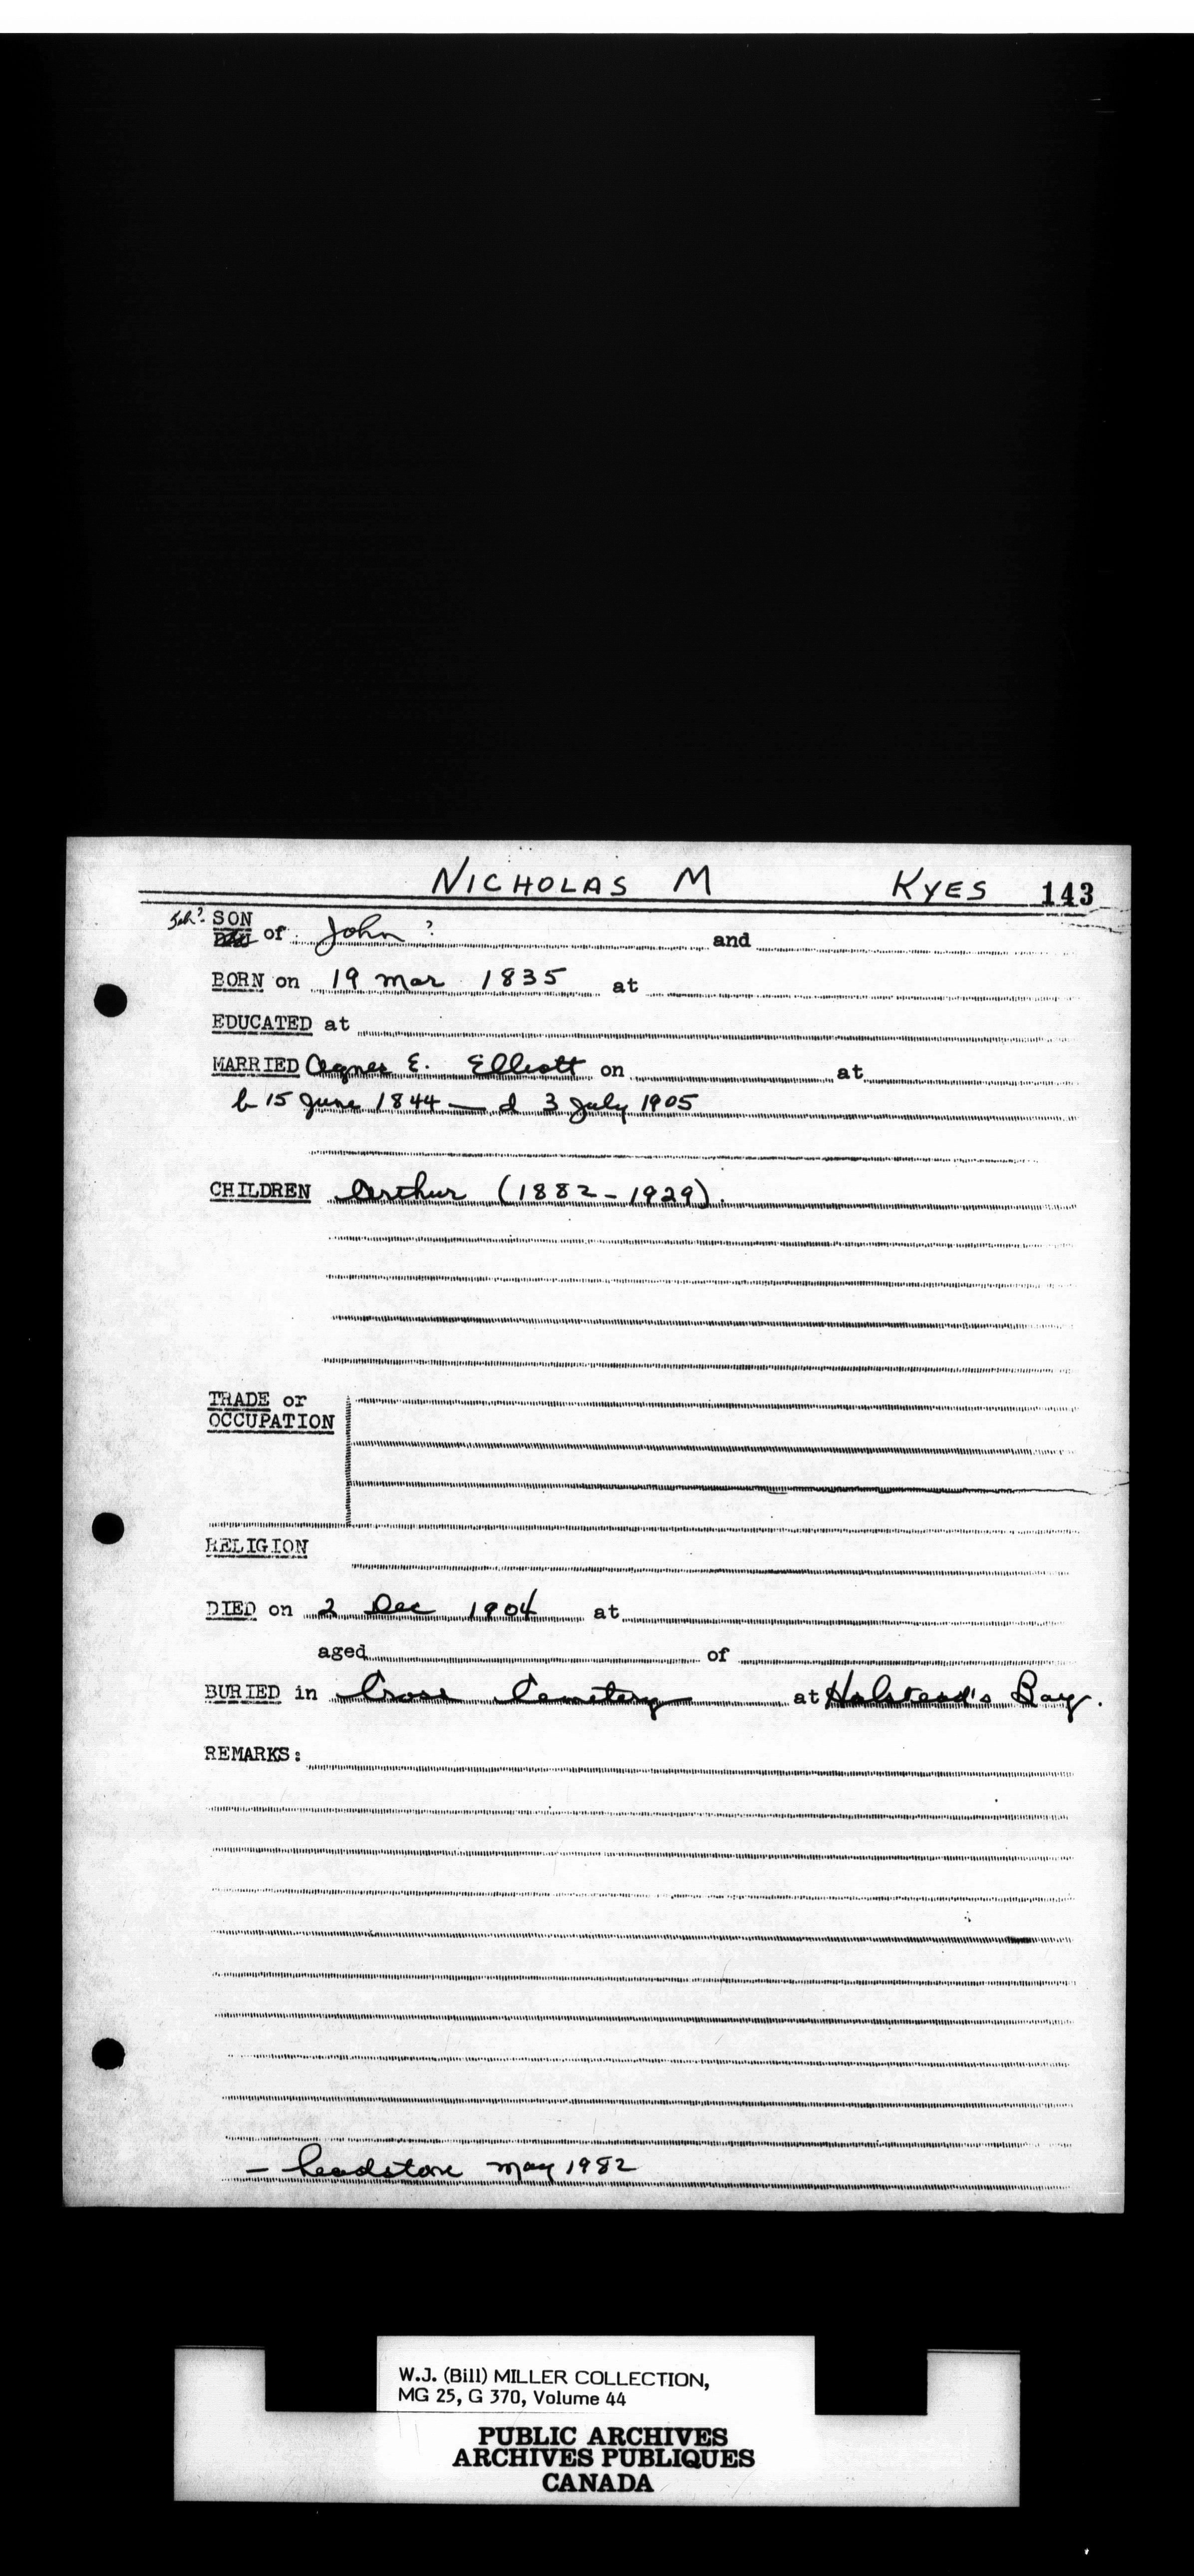 NICHOLAS M KYES 143
SON
DAU of John ? and
BORN on 19 Mar 1835 at
EDUCATED at
MARRIED Agnes E. Elliott on at
b 15 June 1844 — d 3 July 1905
CHILDREN Arthur (1882 - 1929).
TRADE or
OCCUPATION
RELIGION
DIED on 2 Dec 1904 at
aged of
BURIED in Cross Cemetery at Halstead's Bay.
REMARKS:
- headstone May 1982
W.J. (Bill) MILLER COLLECTION,
MG 25, G 370, Volume 44
PUBLIC ARCHIVES
ARCHIVES PUBLIQUES
CANADA